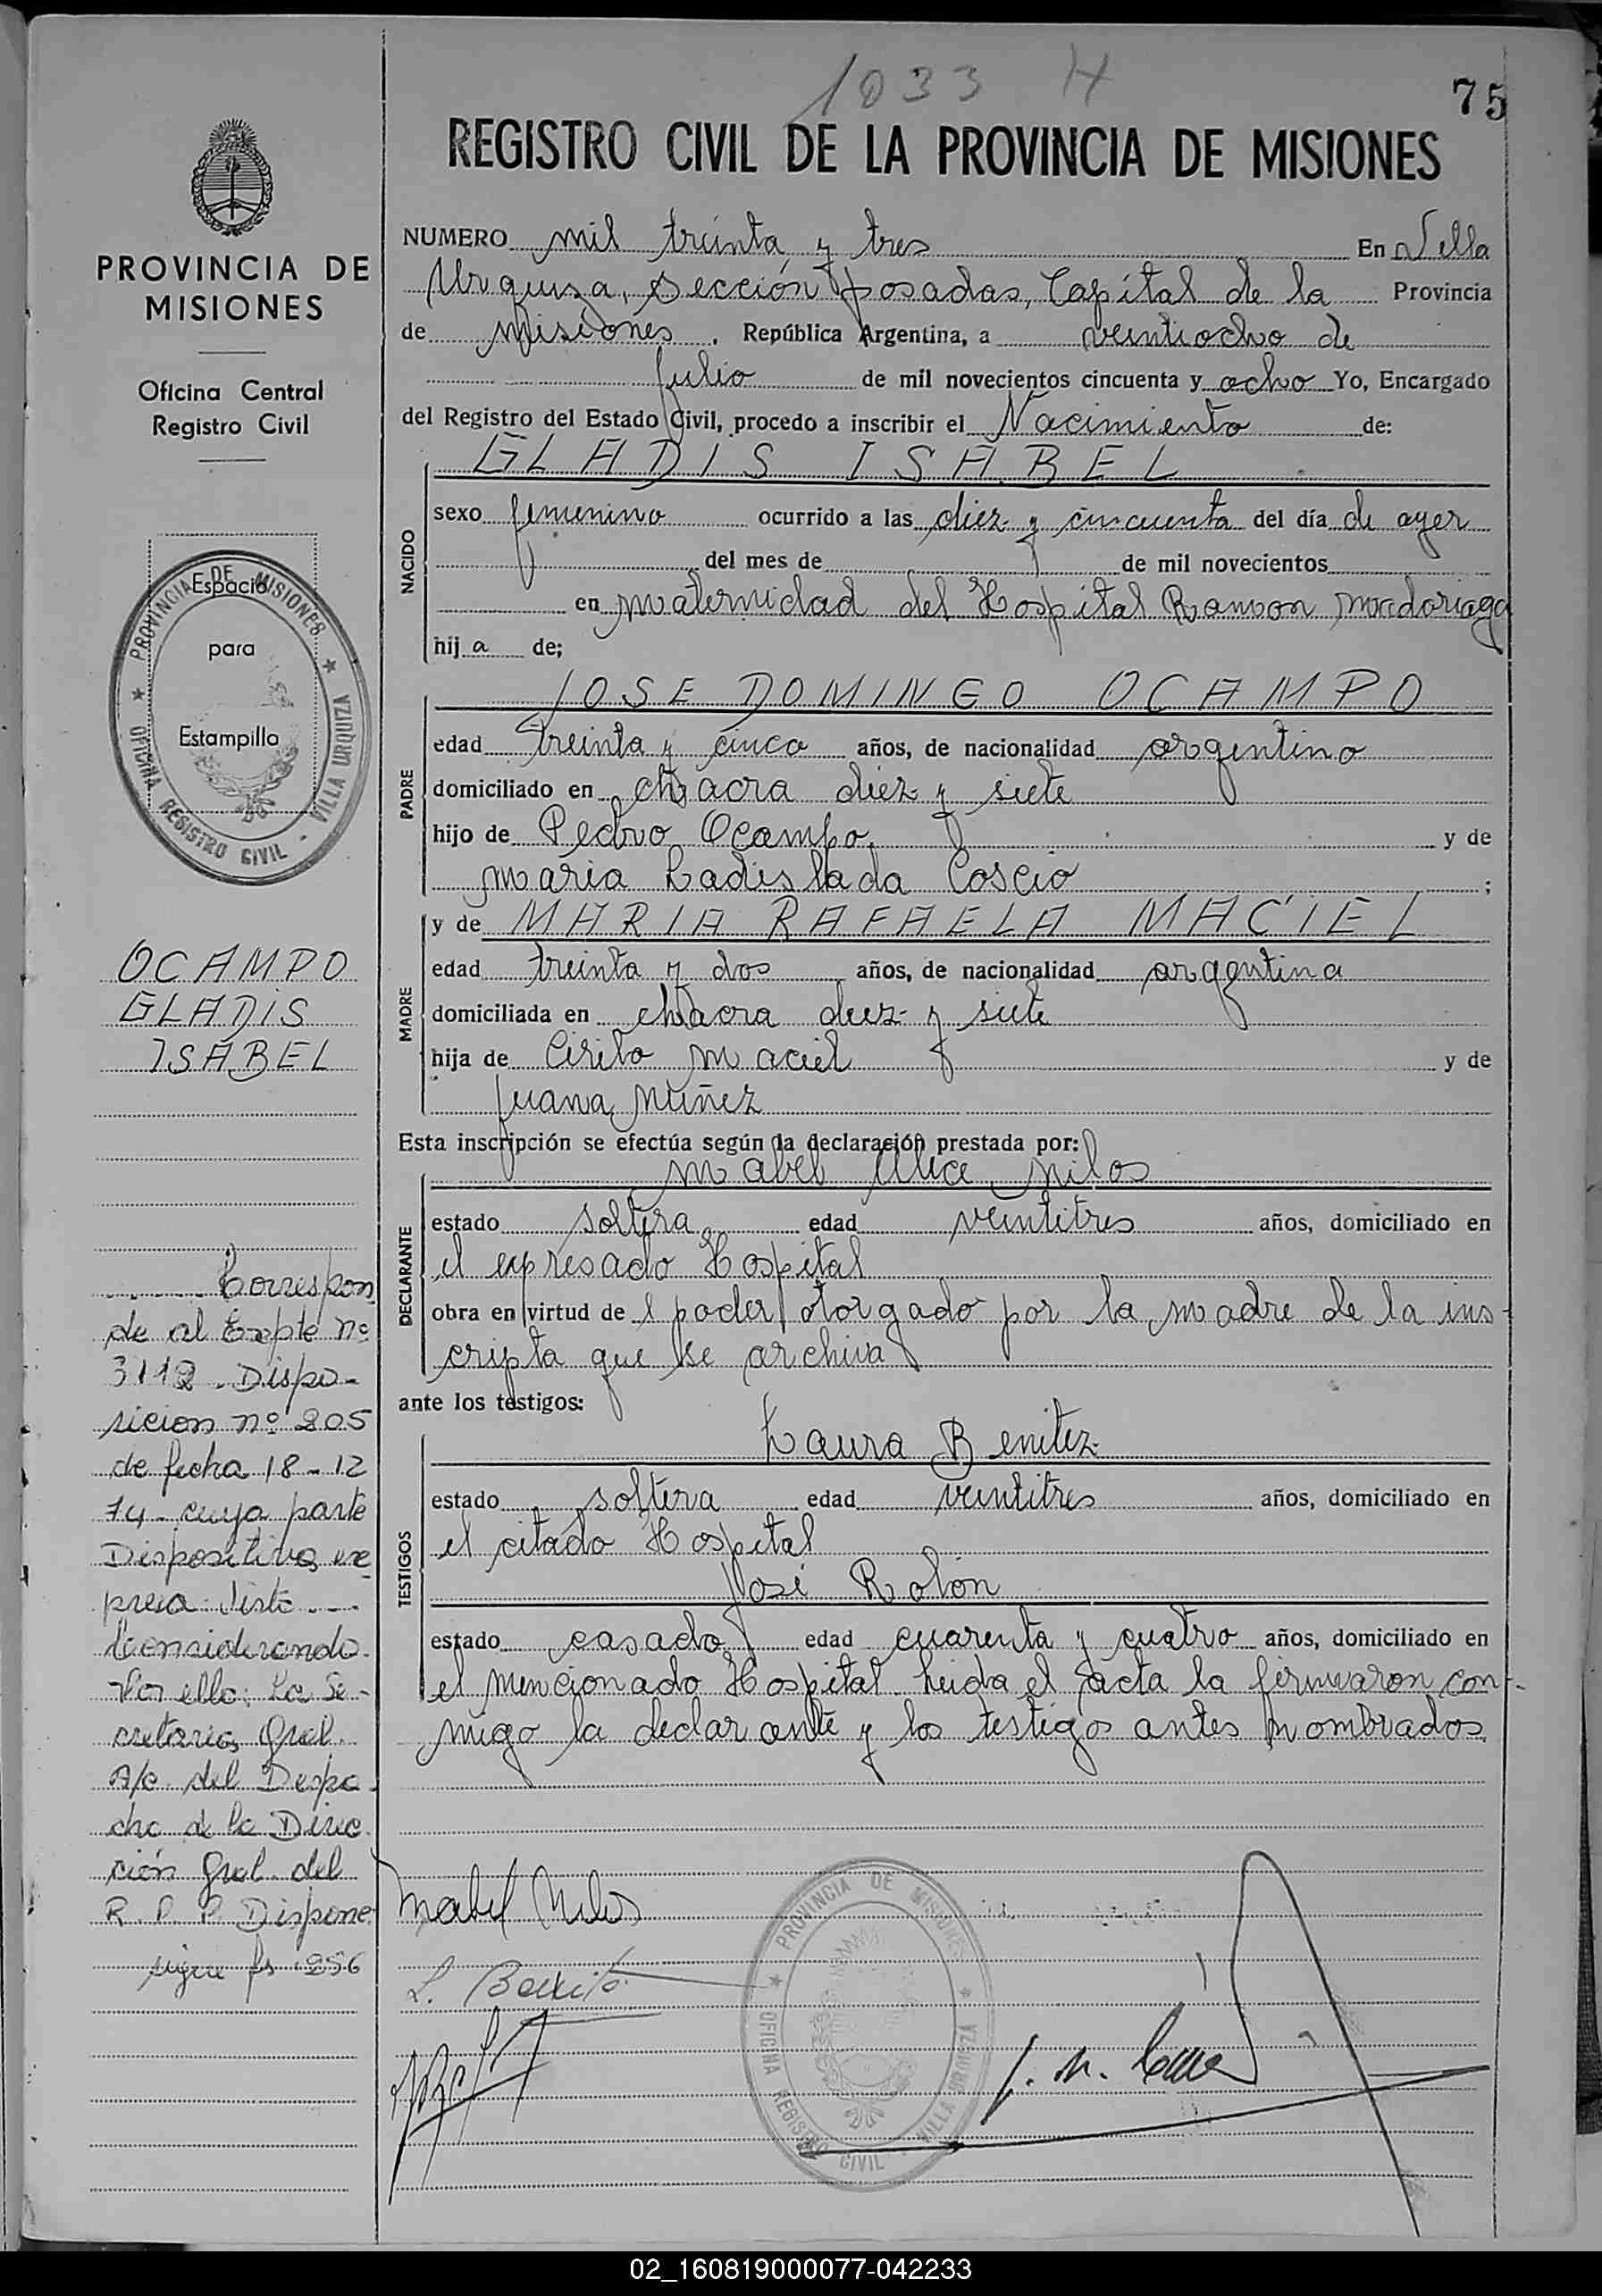 1033 H
75
REGISTRO CIVIL DE LA PROVINCIA DE MISIONES
PROVINCIA DE
MISIONES
Oficina Central
Registro Civil
Espacio
para
Estampilla
PROVINCIA DE MISIONES ★ VILLA URQUIZA - OFICINA REGISTRO CIVIL ★
OCAMPO
GLADIS
ISABEL
Correspon
de al Expte nº
3112 - Dispo-
sicion nº 205
de fecha 18-12
74 - cuya parte
Dispositiva ex
presa: Visto ...
Considerando.
Por ello: La Se-
cretaria Gral.
A/c. del Despa-
cho de la Direc
ción Gral. del
R. P. P. Dispone:
sigue fs 256
NUMERO mil treinta y tres En Villa
Urquiza, Sección posadas, Capital de la Provincia
de Misiones. República Argentina, a veintiocho de
Julio de mil novecientos cincuenta y ocho Yo, Encargado
del Registro del Estado Civil, procedo a inscribir el Nacimiento de:
GLADIS ISABEL
NACIDO
sexo femenino ocurrido a las diez y cincuenta del día de ayer
del mes de de mil novecientos
en maternidad del Hospital Ramon Madariaga
hij a de;
JOSE DOMINGO OCAMPO
PADRE
edad treinta y cinco años, de nacionalidad argentino
domiciliado en chacra diez y siete
hijo de Pedro Ocampo y de
Maria Ladislada Coscio ;
y de MARIA RAFAELA MACIEL
MADRE
edad treinta y dos años, de nacionalidad argentina
domiciliada en chacra diez y siete
hija de Cirilo Maciel y de
Juana Nuñez
Esta inscripción se efectúa según la declaración prestada por:
Mabel Alice Milos
DECLARANTE
estado soltera edad veintitres años, domiciliado en
el expresado Hospital
obra en virtud de l poder otorgado por la madre de la ins-
cripta que se archiva
ante los testigos:
Laura Benitez
TESTIGOS
estado soltera edad veintitres años, domiciliado en
el citado Hospital
José Rolón
estado casado edad cuarenta y cuatro años, domiciliado en
el mencionado Hospital. Leida el acta la firmaron con-
migo la declarante y los testigos antes nombrados.
Mabel Milos
L. Benitez
PROVINCIA DE MISIONES ★ VILLA URQUIZA - OFICINA REGISTRO CIVIL ★
02_160819000077-042233